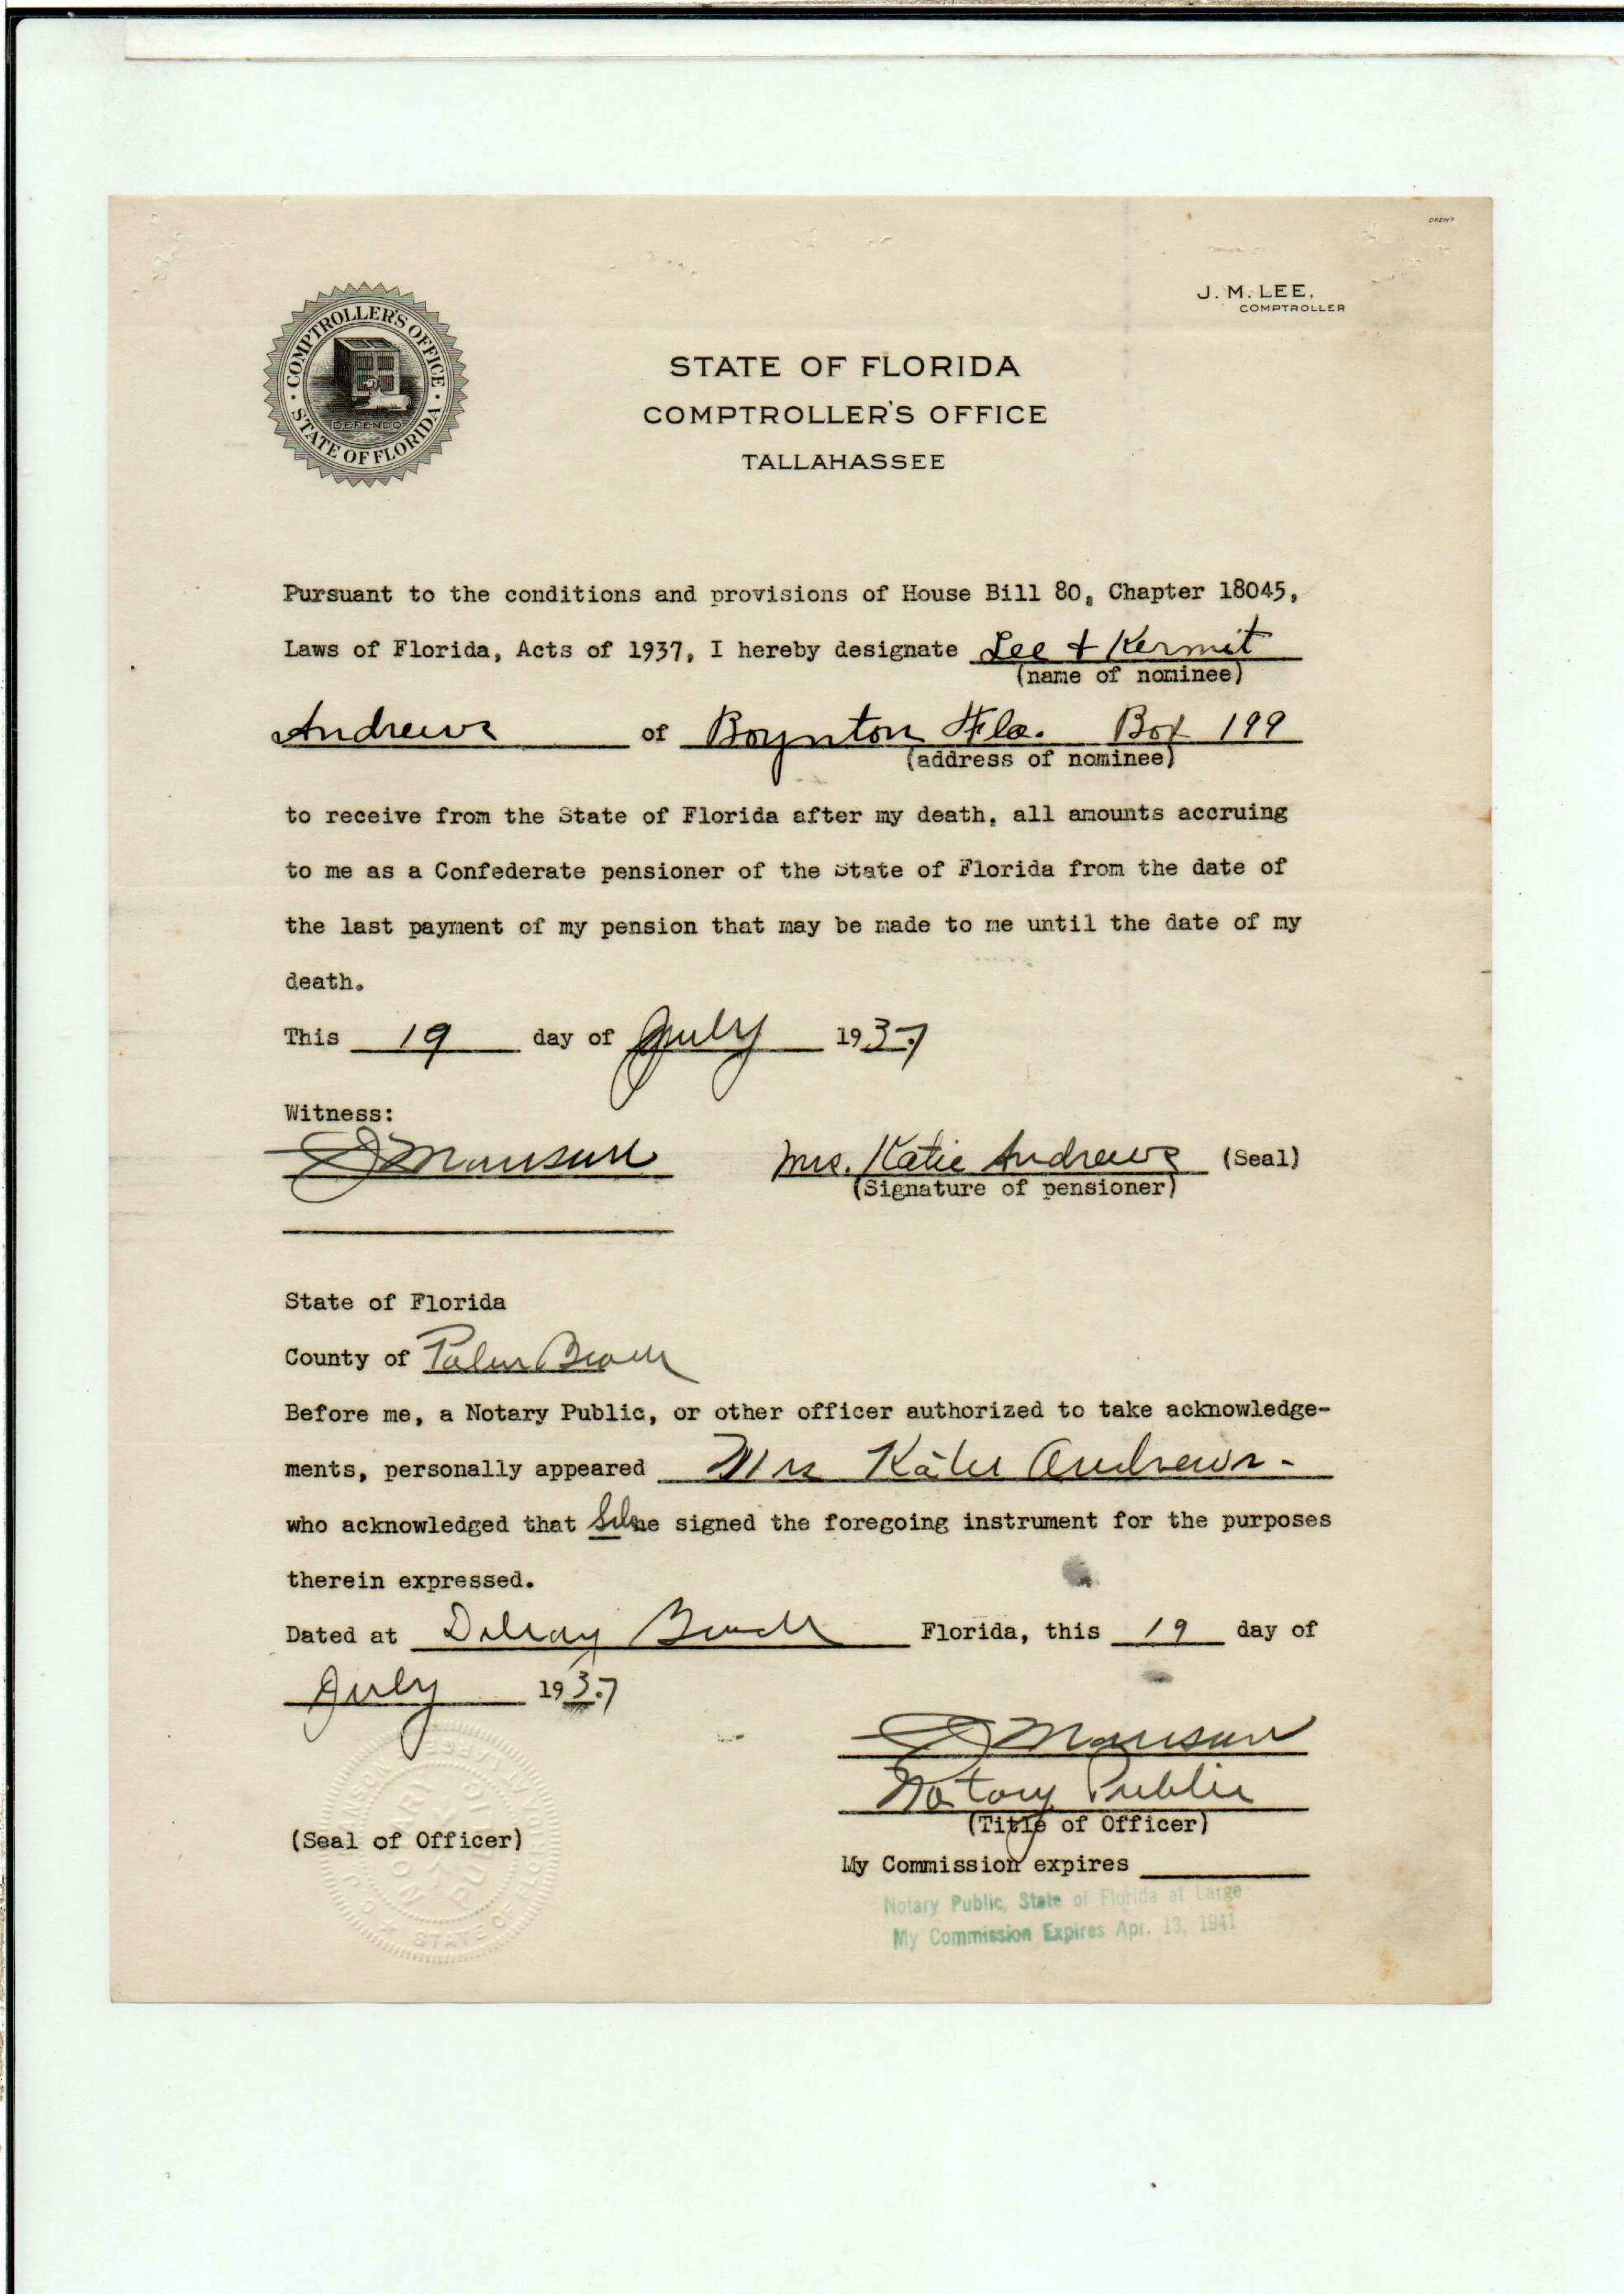 DREW'S
J. M. LEE,
COMPTROLLER
COMPTROLLER'S OFFICE
STATE OF FLORIDA
DEFENDO
STATE OF FLORIDA
COMPTROLLER'S OFFICE
TALLAHASSEE
Pursuant to the conditions and provisions of House Bill 80, Chapter 18045,
Laws of Florida, Acts of 1937, I hereby designate Lee + Kermit
(name of nominee)
Andrews of Boynton Fla. Box 199
(address of nominee)
to receive from the State of Florida after my death, all amounts accruing
to me as a Confederate pensioner of the State of Florida from the date of
the last payment of my pension that may be made to me until the date of my
death.
This 19 day of July 1937
Witness:
Mrs. Katie Andrews (Seal)
(Signature of pensioner)
State of Florida
County of Palm Beach
Before me, a Notary Public, or other officer authorized to take acknowledge-
ments, personally appeared Mrs Katie Andrews-
who acknowledged that She signed the foregoing instrument for the purposes
therein expressed.
Dated at Delray Beach Florida, this 19 day of
July 1937
Notary Public
(Title of Officer)
(Seal of Officer)
My Commission expires
Notary Public, State of Florida at Large
My Commission Expires Apr. 13, 1941
NOTARY
PUBLIC
STATE OF FLORIDA AT LARGE